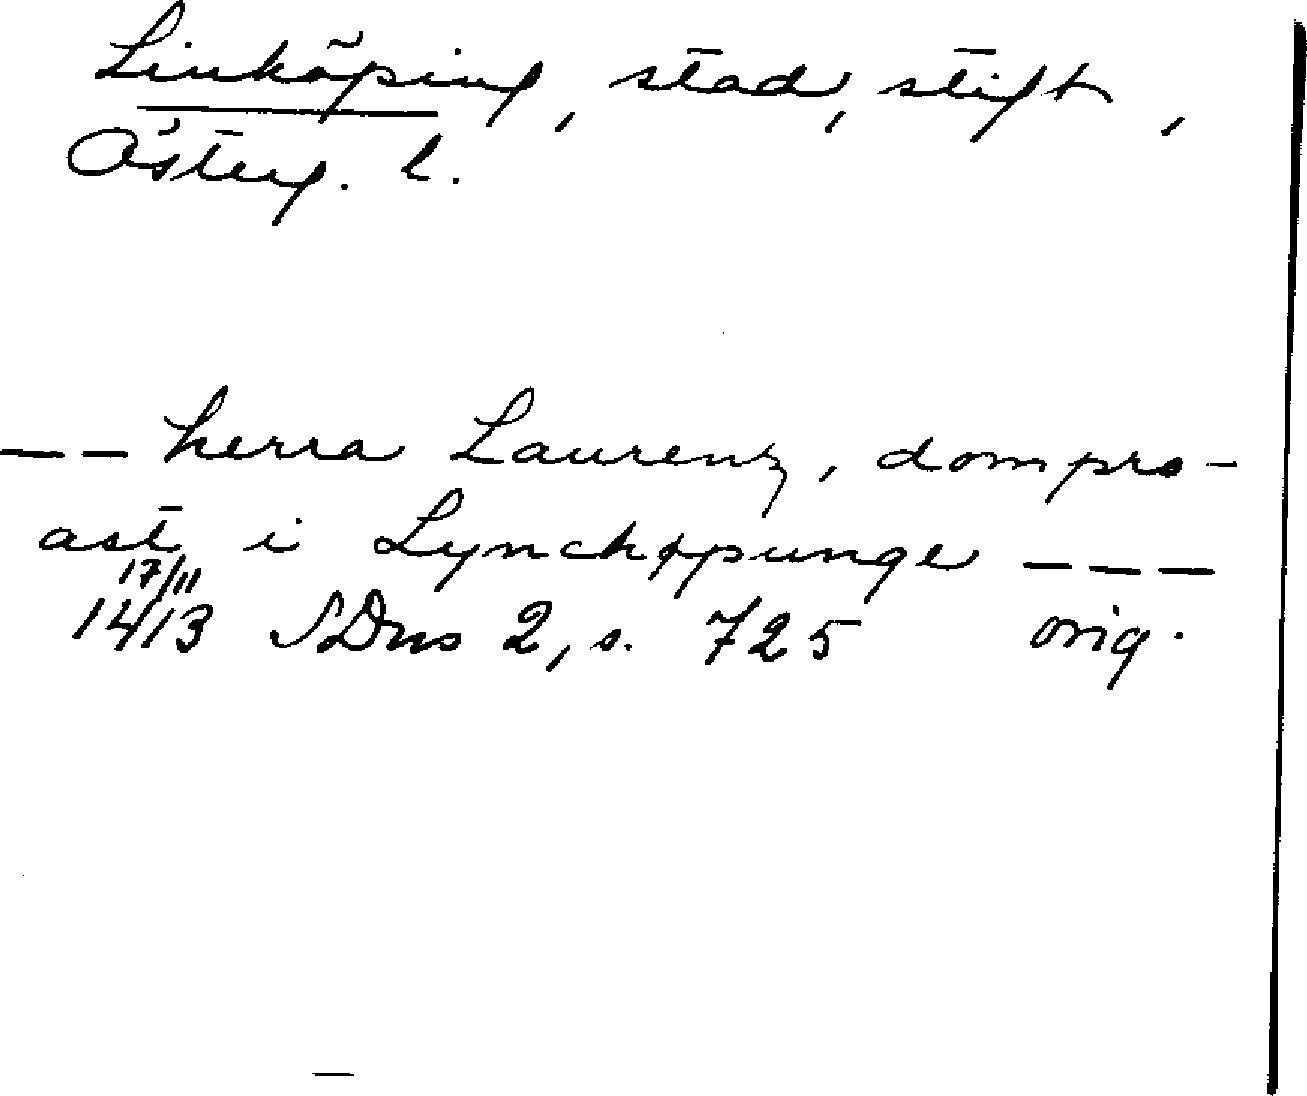 Linköping, stad, stift,
Österg. l.
--- herra Laurenz, dompro-
ast i Lynchøpunge ---
17/11
1413 SDns 2, s. 725 orig.